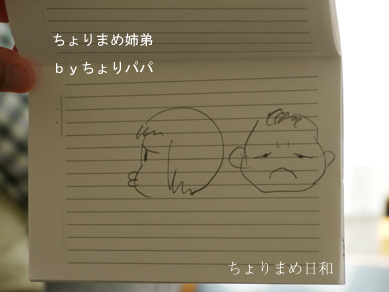 ちょりまめ姉弟
ｂｙちょりパパ
ちょりまめ日和